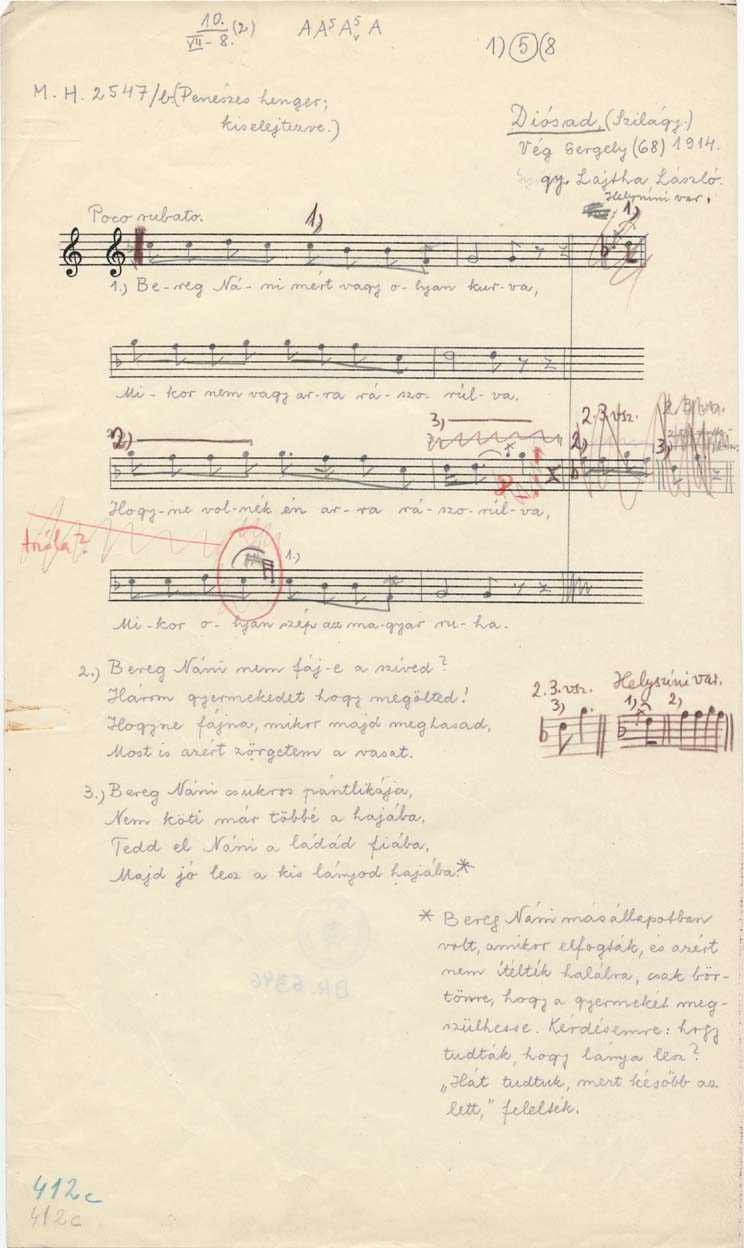 10.
VII-8. (2)
A A⁵ A⁵ᵥ A
1) 5 (8
M. H. 2547/b (Penészes henger;
kiselejtezve.)
Diósad, (Szilágy.)
Vég Gergely (68) 1914.
gy. Lajtha László.
Helyszíni var.
Poco rubato.
1)
1)
1.) Be-reg Ná-ni mért vagy o-lyan kur-va,
Mi-kor nem vagy ar-ra rá-szo-rúl-va.
2)
3)
2.3. vsz.
2)
3)
Hogy-ne vol-nék én ar-ra rá-szo-rúl-va,
1.)
Mi-kor o-lyan szép az ma-gyar ru-ha.
2.) Bereg Náni nem fáj-e a szíved?
Három gyermekedet hogy megölted!
Hogyne fájna, mikor majd meghasad,
Most is azért zörgetem a vasat.
2.3. vsz.
3)
Helyszíni var.
1)
2)
3.) Bereg Náni csukros pántlikája,
Nem köti már többé a hajába,
Tedd el Náni a ládád fiába,
Majd jó lesz a kis lányod hajába.*
* Bereg Náni másállapotban
volt, amikor elfogták, és azért
nem ítélték halálra, csak bör-
tönre, hogy a gyermekét meg-
szülhesse. Kérdésemre: hogy
tudták, hogy lánya lesz?
„Hát tudtuk, mert később az
lett," felelték.
412c
412c